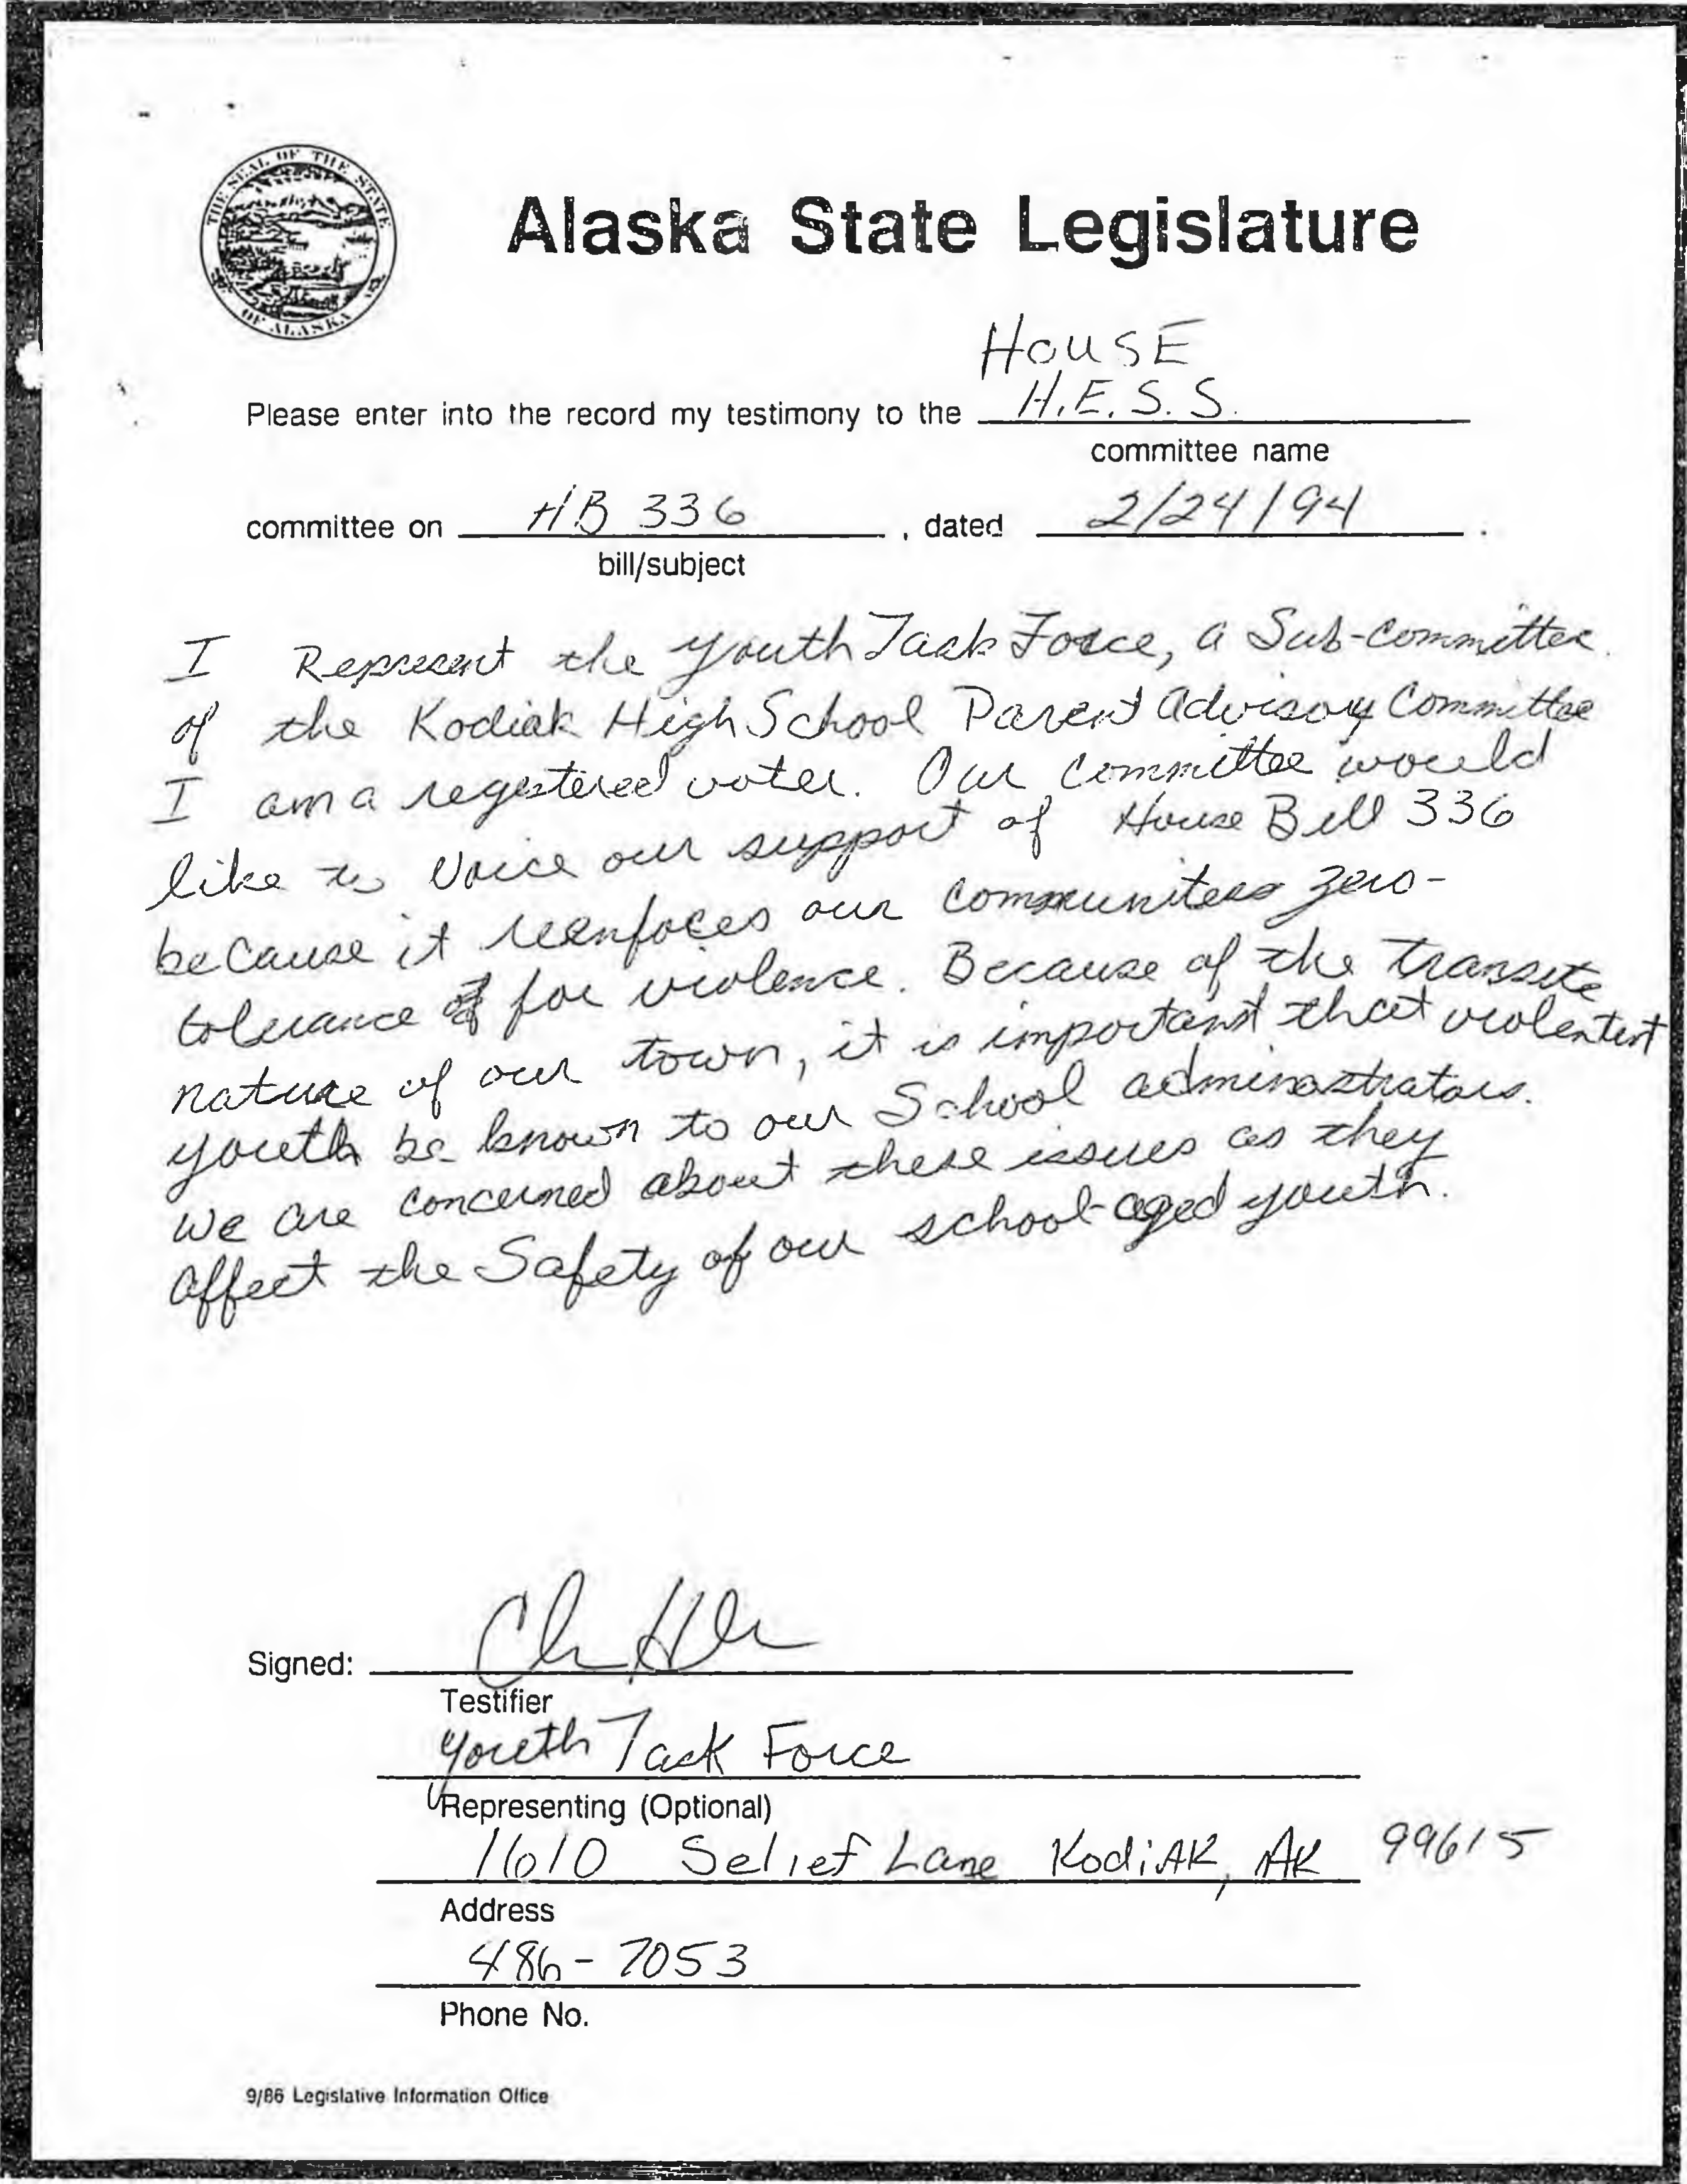 THE SEAL OF THE STATE
OF ALASKA
Alaska State Legislature
HOUSE
Please enter into the record my testimony to the H.E.S.S.
committee name
committee on HB 336 , dated 2/24/94 .
bill/subject
I Represent the Youth Task Force, a Sub-Committee
of the Kodiak High School Parent Advisory Committee
I am a registered voter. Our Committee would
like to Voice our support of House Bill 336
because it reenfoces our communitees zero-
tolerance for violence. Because of the transite
nature of our town, it is important that violentent
youth be known to our School adminastrators.
We are concerned about these issues as they
affect the Safety of our school-aged youth.
Signed:
Testifier
Youth Task Force
Representing (Optional)
1610 Selief Lane Kodiak, AK 99615
Address
486-7053
Phone No.
9/86 Legislative Information Office